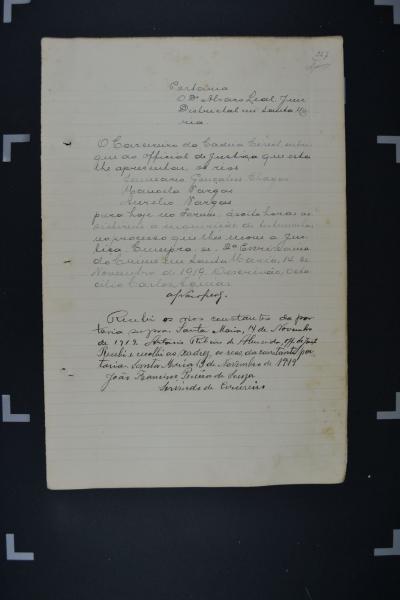 227
Portaria
O Dr. Alvaro Leal, Juiz
Districtal em Santa Ma
ria.
O Carcereiro da Cadeia Civil, entre
gue ao official de Justiça que esta
lhe apresentar, os réos
Gonçalves Chagas
Manoel Vargas
Aurelio Vargas
para hoje no Forum, ás oito horas as
sistirem a inquirição de testemunhas
no processo que lhes move a Jus
tiça. Cumpra-se. 2º
do Crime em Santa Maria, 14 de
Novembro de 1919. O escrivão,
cilio Carlos
Recebi os réos constantes da por
taria supra. Santa Maria, 14 de Novembro
de 1919. Antonio Ribeiro de Almeida, off. de Just.
Recebi e recolhi ao xadrez os réos da constante por
taria. Santa Maria 13 de Novembro de 1919
João Francisco Pereira de Souza
Servindo de Carcereiro